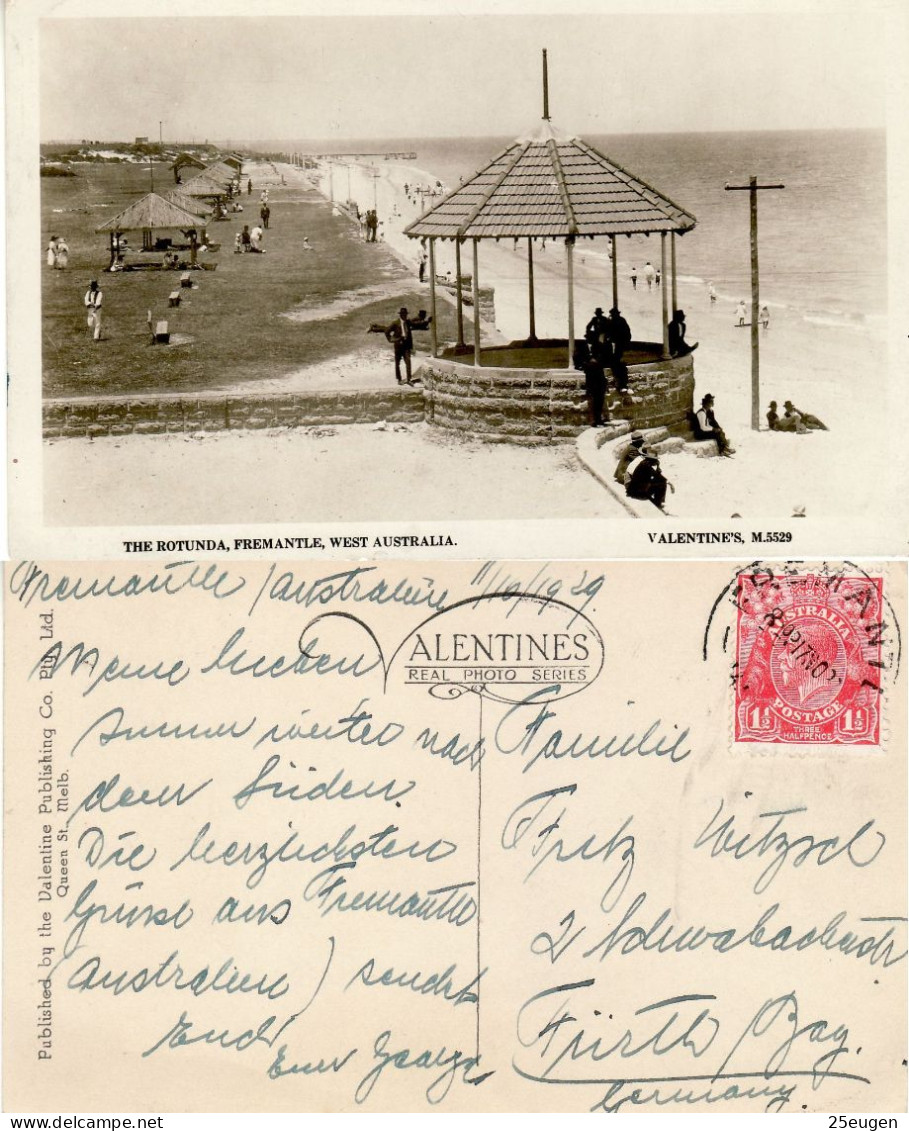 THE ROTUNDA, FREMANTLE, WEST AUSTRALIA.
VALENTINE'S, M.5529
Fremantle / Australien 11/10/1929
VALENTINES
REAL PHOTO SERIES
Published by the Valentine Publishing Co. Pty. Ltd.
Queen St., Melb.
FREMANTLE
AUSTRALIA
POSTAGE
1½ 1½
THREE
HALFPENCE
Meine lieben
Immer weiter nach
dem Süden.
Die herzlichsten
Grüsse aus Fremantle
(Australien) sendet
Euch
Euer George
Familie
Fritz Witzsch
2 Schwabacherstr
Fürth Bay.
Germany
25eugen
delcampe.net